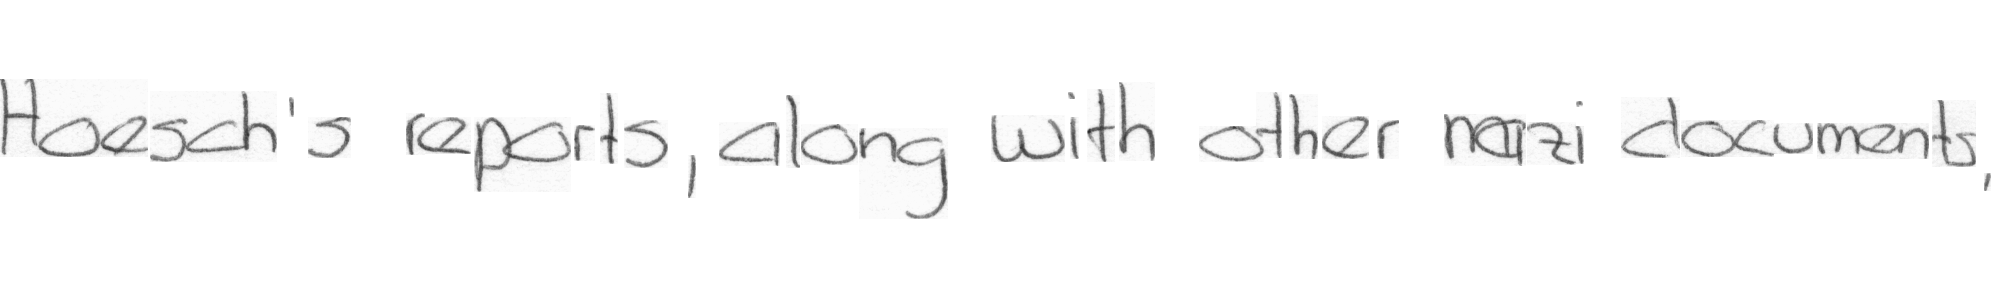 Hoesch's reports, along with other nazi documents,